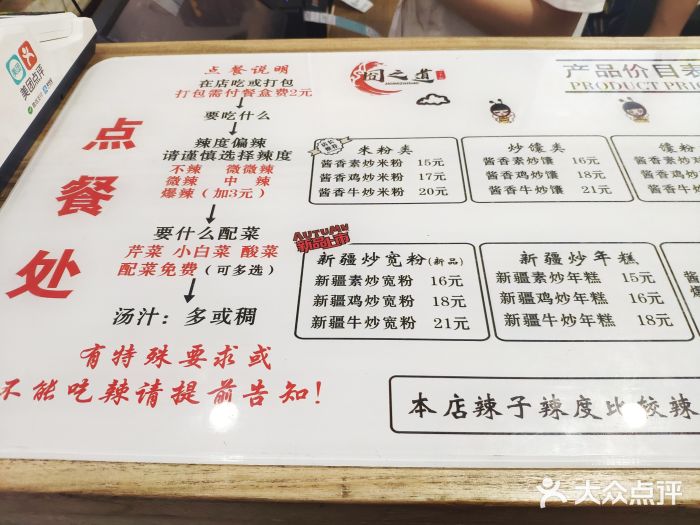 美团点评
点餐处
点餐说明
在店吃或打包
打包需付餐盒费2元
要吃什么
辣度偏辣
请谨慎选择辣度
不辣 微微辣
微辣 中 辣
爆辣（加3元）
要什么配菜
芹菜 小白菜 酸菜
配菜免费（可多选）
汤汁：多或稠
有特殊要求或
不能吃辣请提前告知！
产品价目表
PRODUCT PRIC
米粉类
酱香素炒米粉 15元
酱香鸡炒米粉 17元
酱香牛炒米粉 20元
炒馕类
酱香素炒馕 16元
酱香鸡炒馕 18元
酱香牛炒馕 21元
馕粉
酱香
酱香
酱香
AUTUMN
新品上市
新疆炒宽粉(新品)
新疆素炒宽粉 16元
新疆鸡炒宽粉 18元
新疆牛炒宽粉 21元
新疆炒年糕
新疆素炒年糕 15元
新疆鸡炒年糕 16元
新疆牛炒年糕 18元
本店辣子辣度比较辣
大众点评